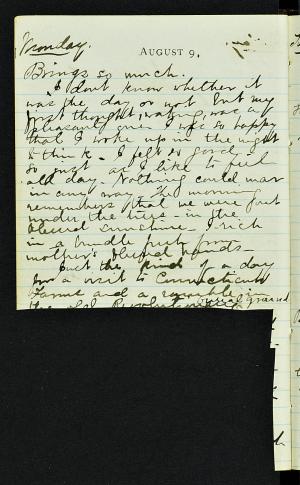 Monday.
AUGUST 9.
Brings so much.
I dont know whether it
was the day or not but my
first thought, waking, was a
pleasant one. I was so happy
that I woke up in the night
to think. I felt so good,
so just as I like to feel
all day. Nothing could mar
in any way. The morning
remembers that we were just
under the trees - in the
blessed sunshine - rich
in a bundle from
mother's blessed hands -
Just the kind of a day
for a visit to Connecticut
Farms and a ramble in
the old Revolutionary ground